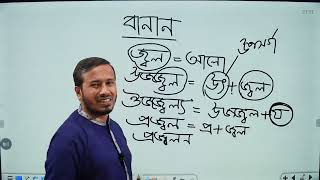 বানান
উপসর্গ
জ্বল = আলো
উজ্জ্বল = উৎ + জ্বল
ঔজ্জ্বল্য = উজ্জ্বল + য
প্রজ্বল = প্র + জ্বল
প্রজ্বলন